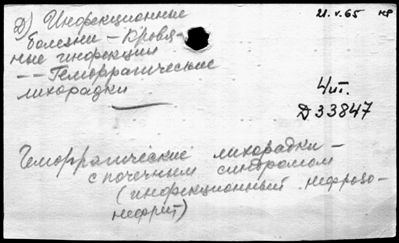 Д) Инфекционные
болезни – Кровя-
ные инфекции
–– Геморрагические
лихорадки
21.V.65 нр
Чит.
Д33847
Геморрагические лихорадки –
с почечным синдромом
(инфекционный нефрозо-
нефрит)